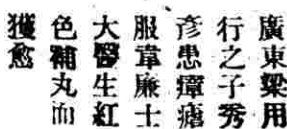 廣東梁用
行之子秀
彥患瘴瘧
服韋廉士
大醫生紅
色補丸而
獲愈